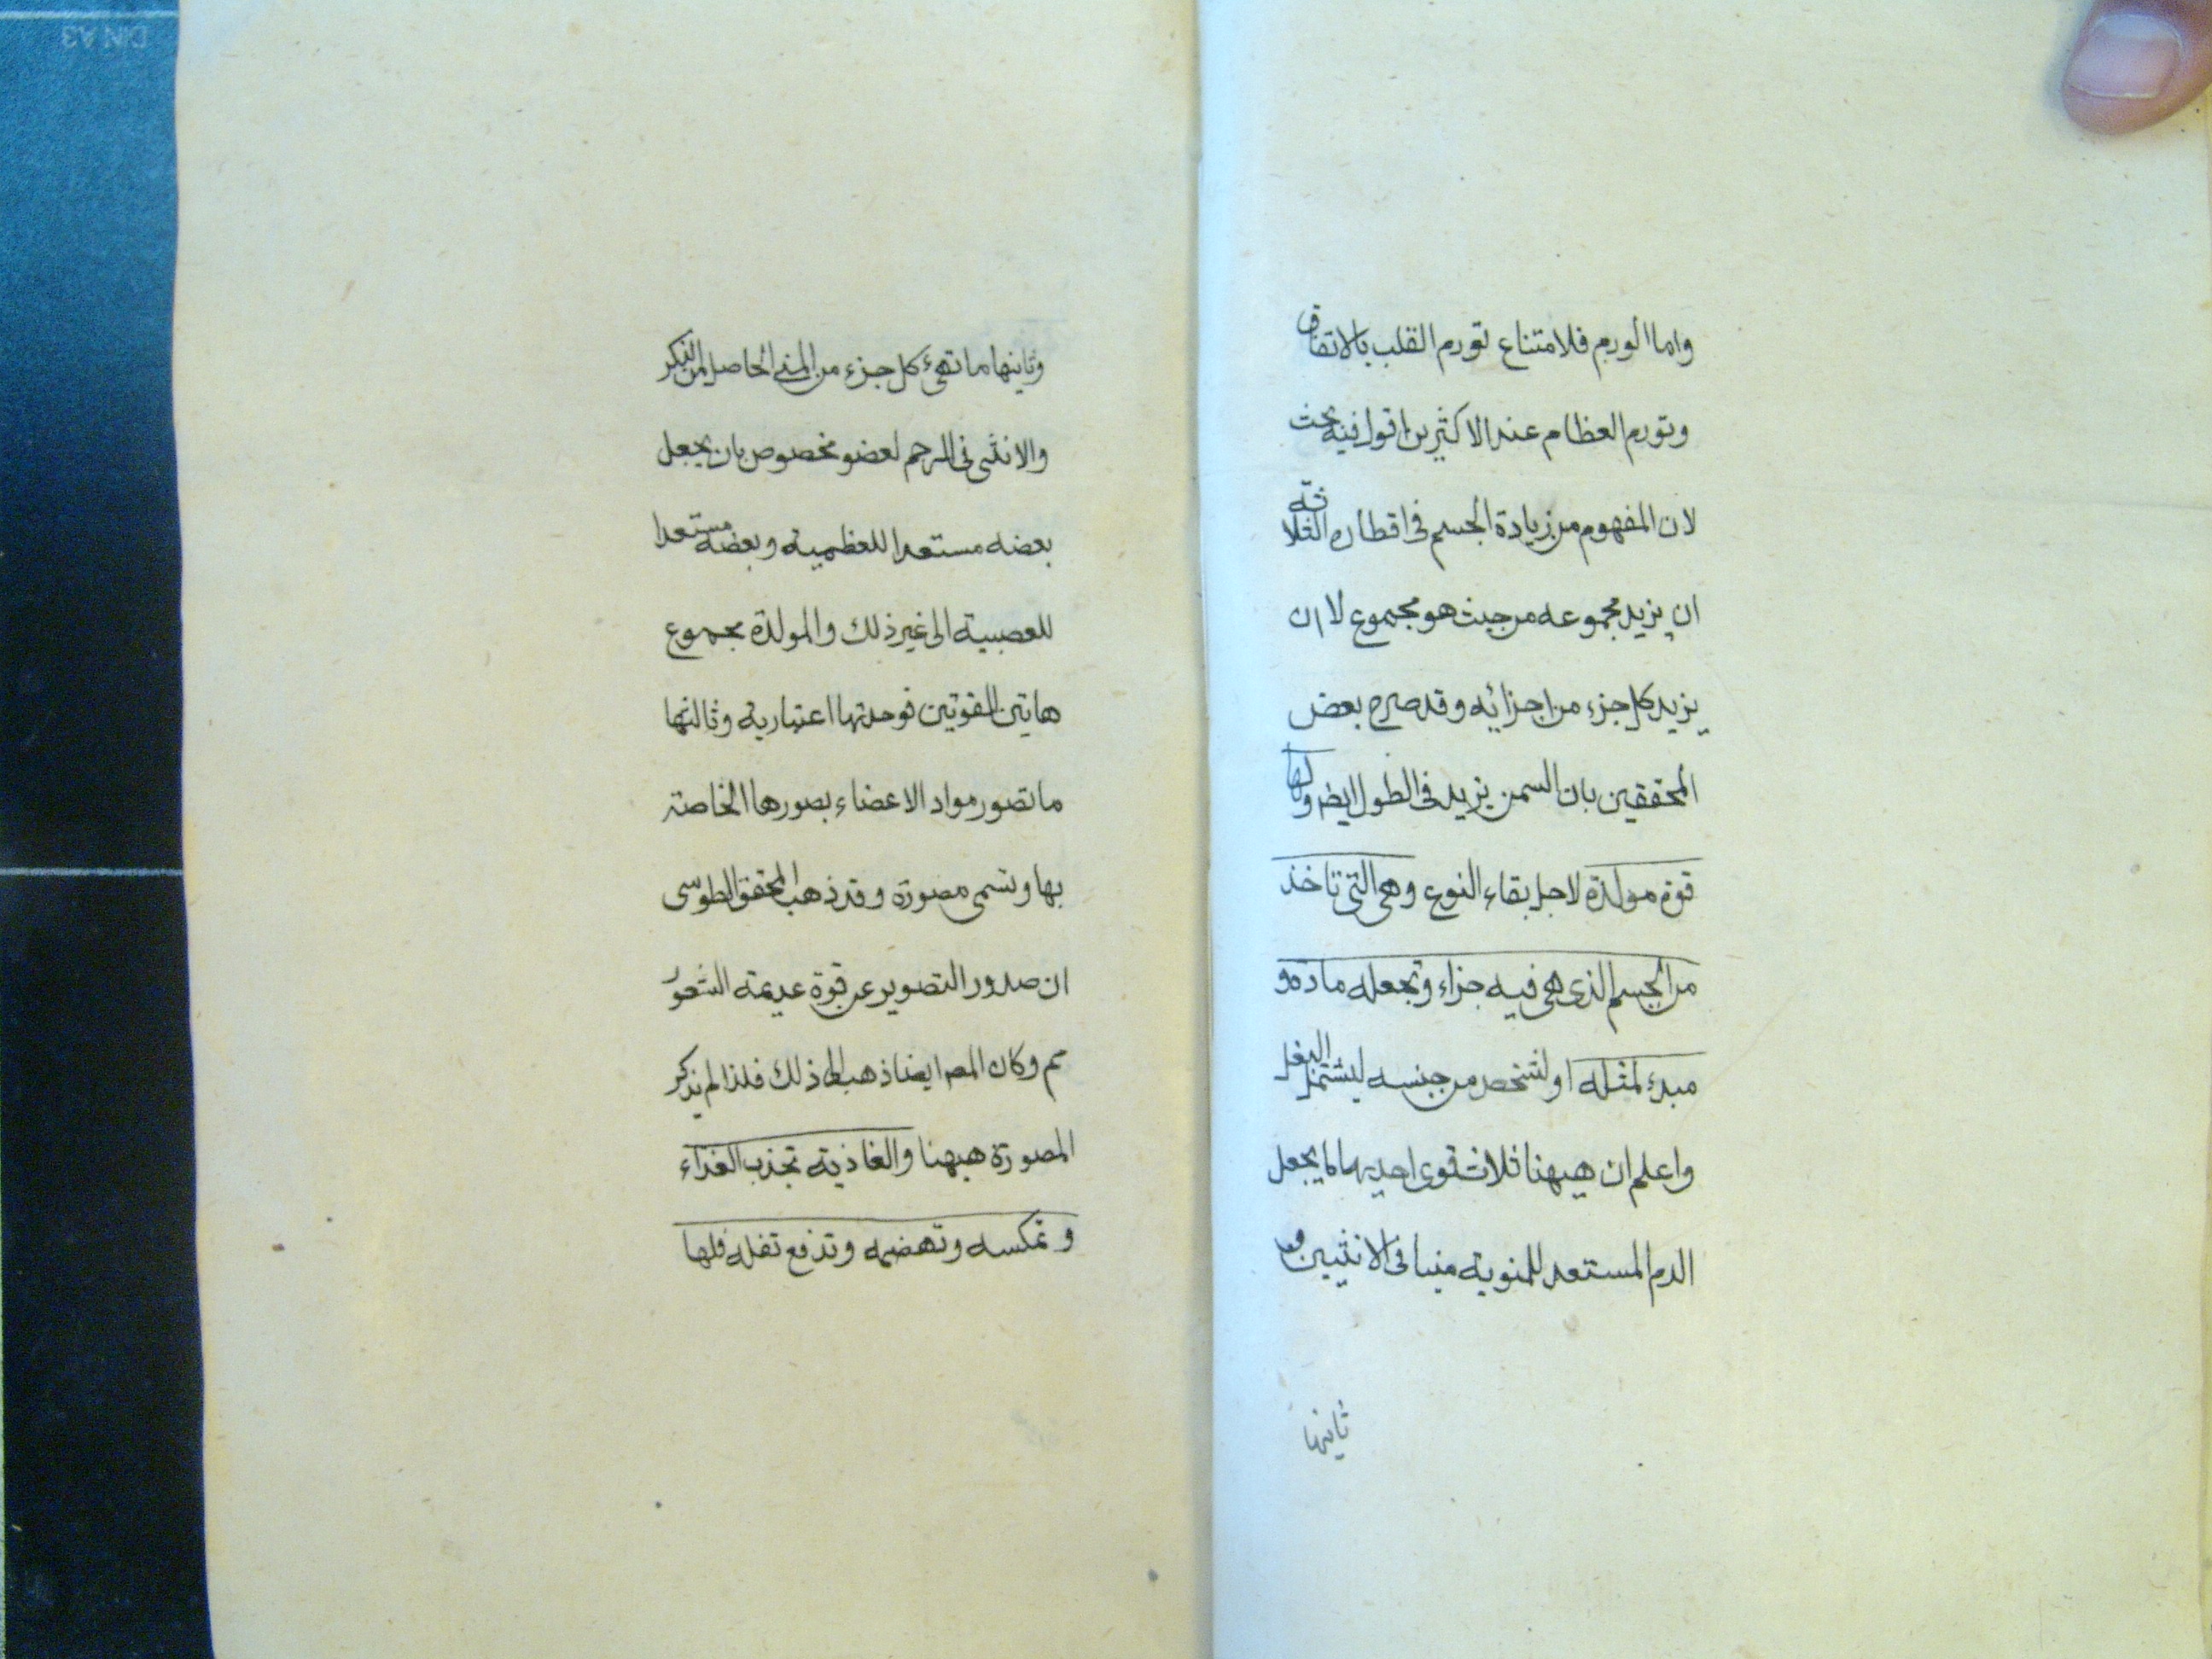 واما الورم فلامتناع تورم القلب بالاتفاق
وتورم العظام عند الاكثرين اقول فيه بحث
لان المفهوم من زيادة الجسم فى اقطاره الثلاثة
ان يزيد مجموعه من حيث هو مجموع لا ان
يزيد كل جزء من اجزائه وقد صرح بعض
المحققين بان السمن يزيد فى الطول ايضا ولها
قوة مولدة لاجل بقاء النوع وهى التى تاخذ
من الجسم الذى هى فيه جزاء وتجعله مادة و
مبدء لمثله او لشخص من جنسه ليشتمل البغل
واعلم ان هيهنا ثلاث قوى احديها ما يجعل
الدم المستعد للمنوية منيا فى الانثيين
ثانيها
وثانيها ما تهيئ كل جزء من المنى الحاصل من الذكر
والانثى فى الرحم لعضو مخصوص بان يجعل
بعضه مستعدا للعظمية وبعضه مستعدا
للعصبية الى غير ذلك والمولدة مجموع
هاتين القوتين فوحدتها اعتبارية وثالثها
ما تصور مواد الاعضاء بصورها الخاصة
بها وتسمى مصورة وقد ذهب المحقق الطوسى
ان صدور التصوير عن قوة عديمة الشعور
مم وكان المصـ ايضا ذهب الى ذلك فلذا لم يذكر
المصورة هيهنا والغاذية تجذب الغذاء
وتمكسه وتهضمه وتدفع تفله فلها